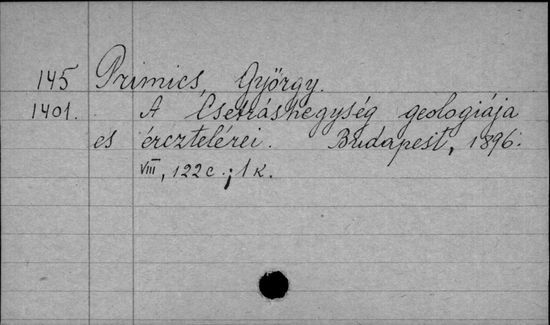 145 Primics, György.
1401. A Csetráshegység geologiája
es ércztelérei. Budapest, 1896.
VIII, 122 c.; 1 к.